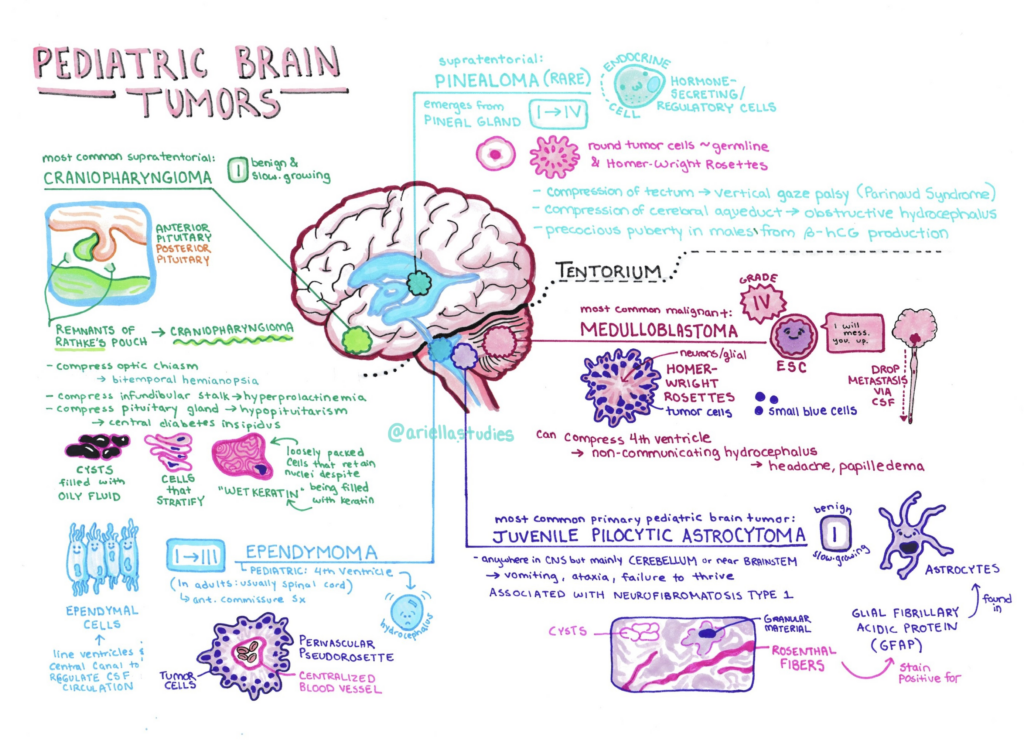 PEDIATRIC BRAIN
TUMORS
supratentorial:
PINEALOMA (RARE)
emerges from
PINEAL GLAND
I → IV
ENDOCRINE
CELL
HORMONE-
SECRETING/
REGULATORY CELLS
round tumor cells ~ germline
& Homer-Wright Rosettes
- compression of tectum → vertical gaze palsy (Parinaud Syndrome)
- compression of cerebral aqueduct → obstructive hydrocephalus
- precocious puberty in males from β-hCG production
most common supratentorial:
CRANIOPHARYNGIOMA
I
benign &
slow-growing
ANTERIOR
PITUITARY
POSTERIOR
PITUITARY
REMNANTS OF
RATHKE'S POUCH
→ CRANIOPHARYNGIOMA
- compress optic chiasm
→ bitemporal hemianopsia
- compress infundibular stalk → hyperprolactinemia
- compress pituitary gland → hypopituitarism
→ central diabetes insipidus
CYSTS
filled with
OILY FLUID
CELLS
that
STRATIFY
"WET KERATIN"
loosely packed
cells that retain
nuclei despite
being filled
with keratin
TENTORIUM
most common malignant:
MEDULLOBLASTOMA
GRADE
IV
ESC
I will
mess.
you. up.
DROP
METASTASIS
VIA
CSF
neurons/glial
HOMER-
WRIGHT
ROSETTES
tumor cells
small blue cells
can compress 4th ventricle
→ non-communicating hydrocephalus
→ headache, papilledema
@ariellastudies
most common primary pediatric brain tumor:
JUVENILE PILOCYTIC ASTROCYTOMA
benign
I
slow-growing
ASTROCYTES
- anywhere in CNS but mainly CEREBELLUM or near BRAINSTEM
→ vomiting, ataxia, failure to thrive
ASSOCIATED WITH NEUROFIBROMATOSIS TYPE 1
CYSTS
GRANULAR
MATERIAL
ROSENTHAL
FIBERS
stain
positive for
GLIAL FIBRILLARY
ACIDIC PROTEIN
(GFAP)
found
in
I → III
EPENDYMOMA
PEDIATRIC: 4th ventricle
(In adults: usually spinal cord)
↳ ant. commissure sx
hydrocephalus
EPENDYMAL
CELLS
line ventricles &
central canal to
REGULATE CSF
CIRCULATION
TUMOR
CELLS
PERIVASCULAR
PSEUDOROSETTE
CENTRALIZED
BLOOD VESSEL